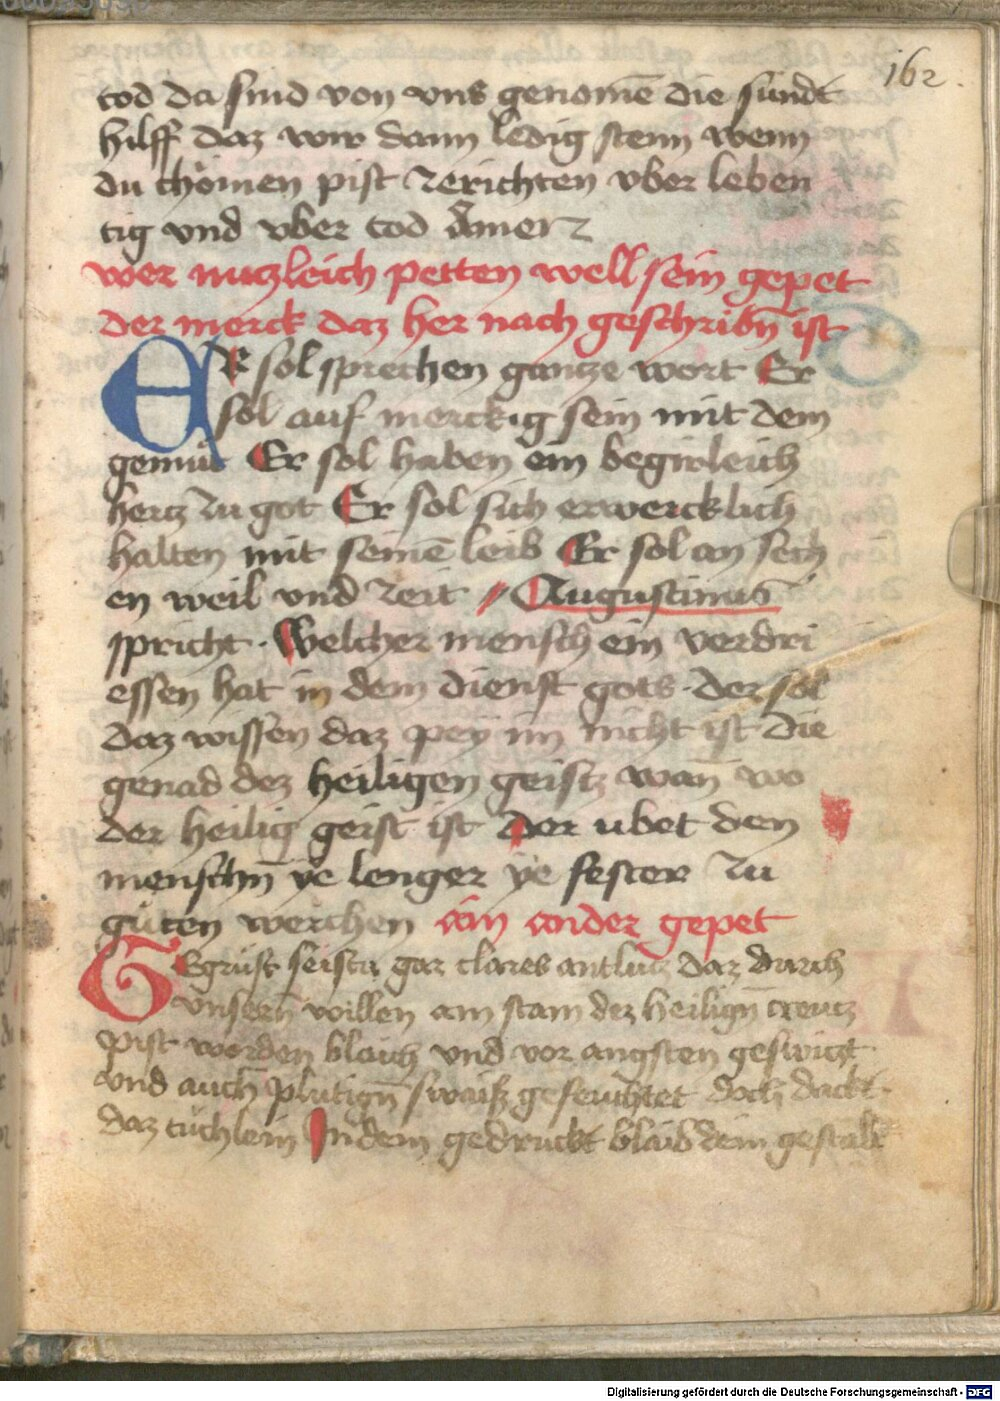 162.
tod da sind von vns genomē die sündt
hilff daz wir dann ledig stenn wenn
du chömen pist zerichten vber leben
tig vnd vber tod
wer nuczleich petten well sein gepet
der merck daz her nach geschribn̄ ist
ER sol sprechen gancze wort Er
sol auf merckig sein mit dem
gemüt Er sol haben ein begirleich
hercz zu got Er sol sich erwercklich
halten mit seinē leib Er sol an sech
en weil vnd zeit // Augustinus
spricht · Welcher mensch ein verdri
essen hat in dem dienst gots · der sol
daz wissen daz pey im nicht ist die
genad dez heiligen geistz wan̄ wo
der heilig geist ist Der ubet den
menschn̄ ye lenger ye fester zu
güten werchen ain ander gepet
GEgrüst seistu gar clares antlutz daz durch
vnsern̄ willen am stam dez heilign̄ creutz
pist worden blaich vnd vor angsten geswiczt
vnd auch plutign̄ swaisz gefeuchtet doch dackt
daz tüchlein In dem gedruckt blaib dein gestalt
Digitalisierung gefördert durch die Deutsche Forschungsgemeinschaft - DFG